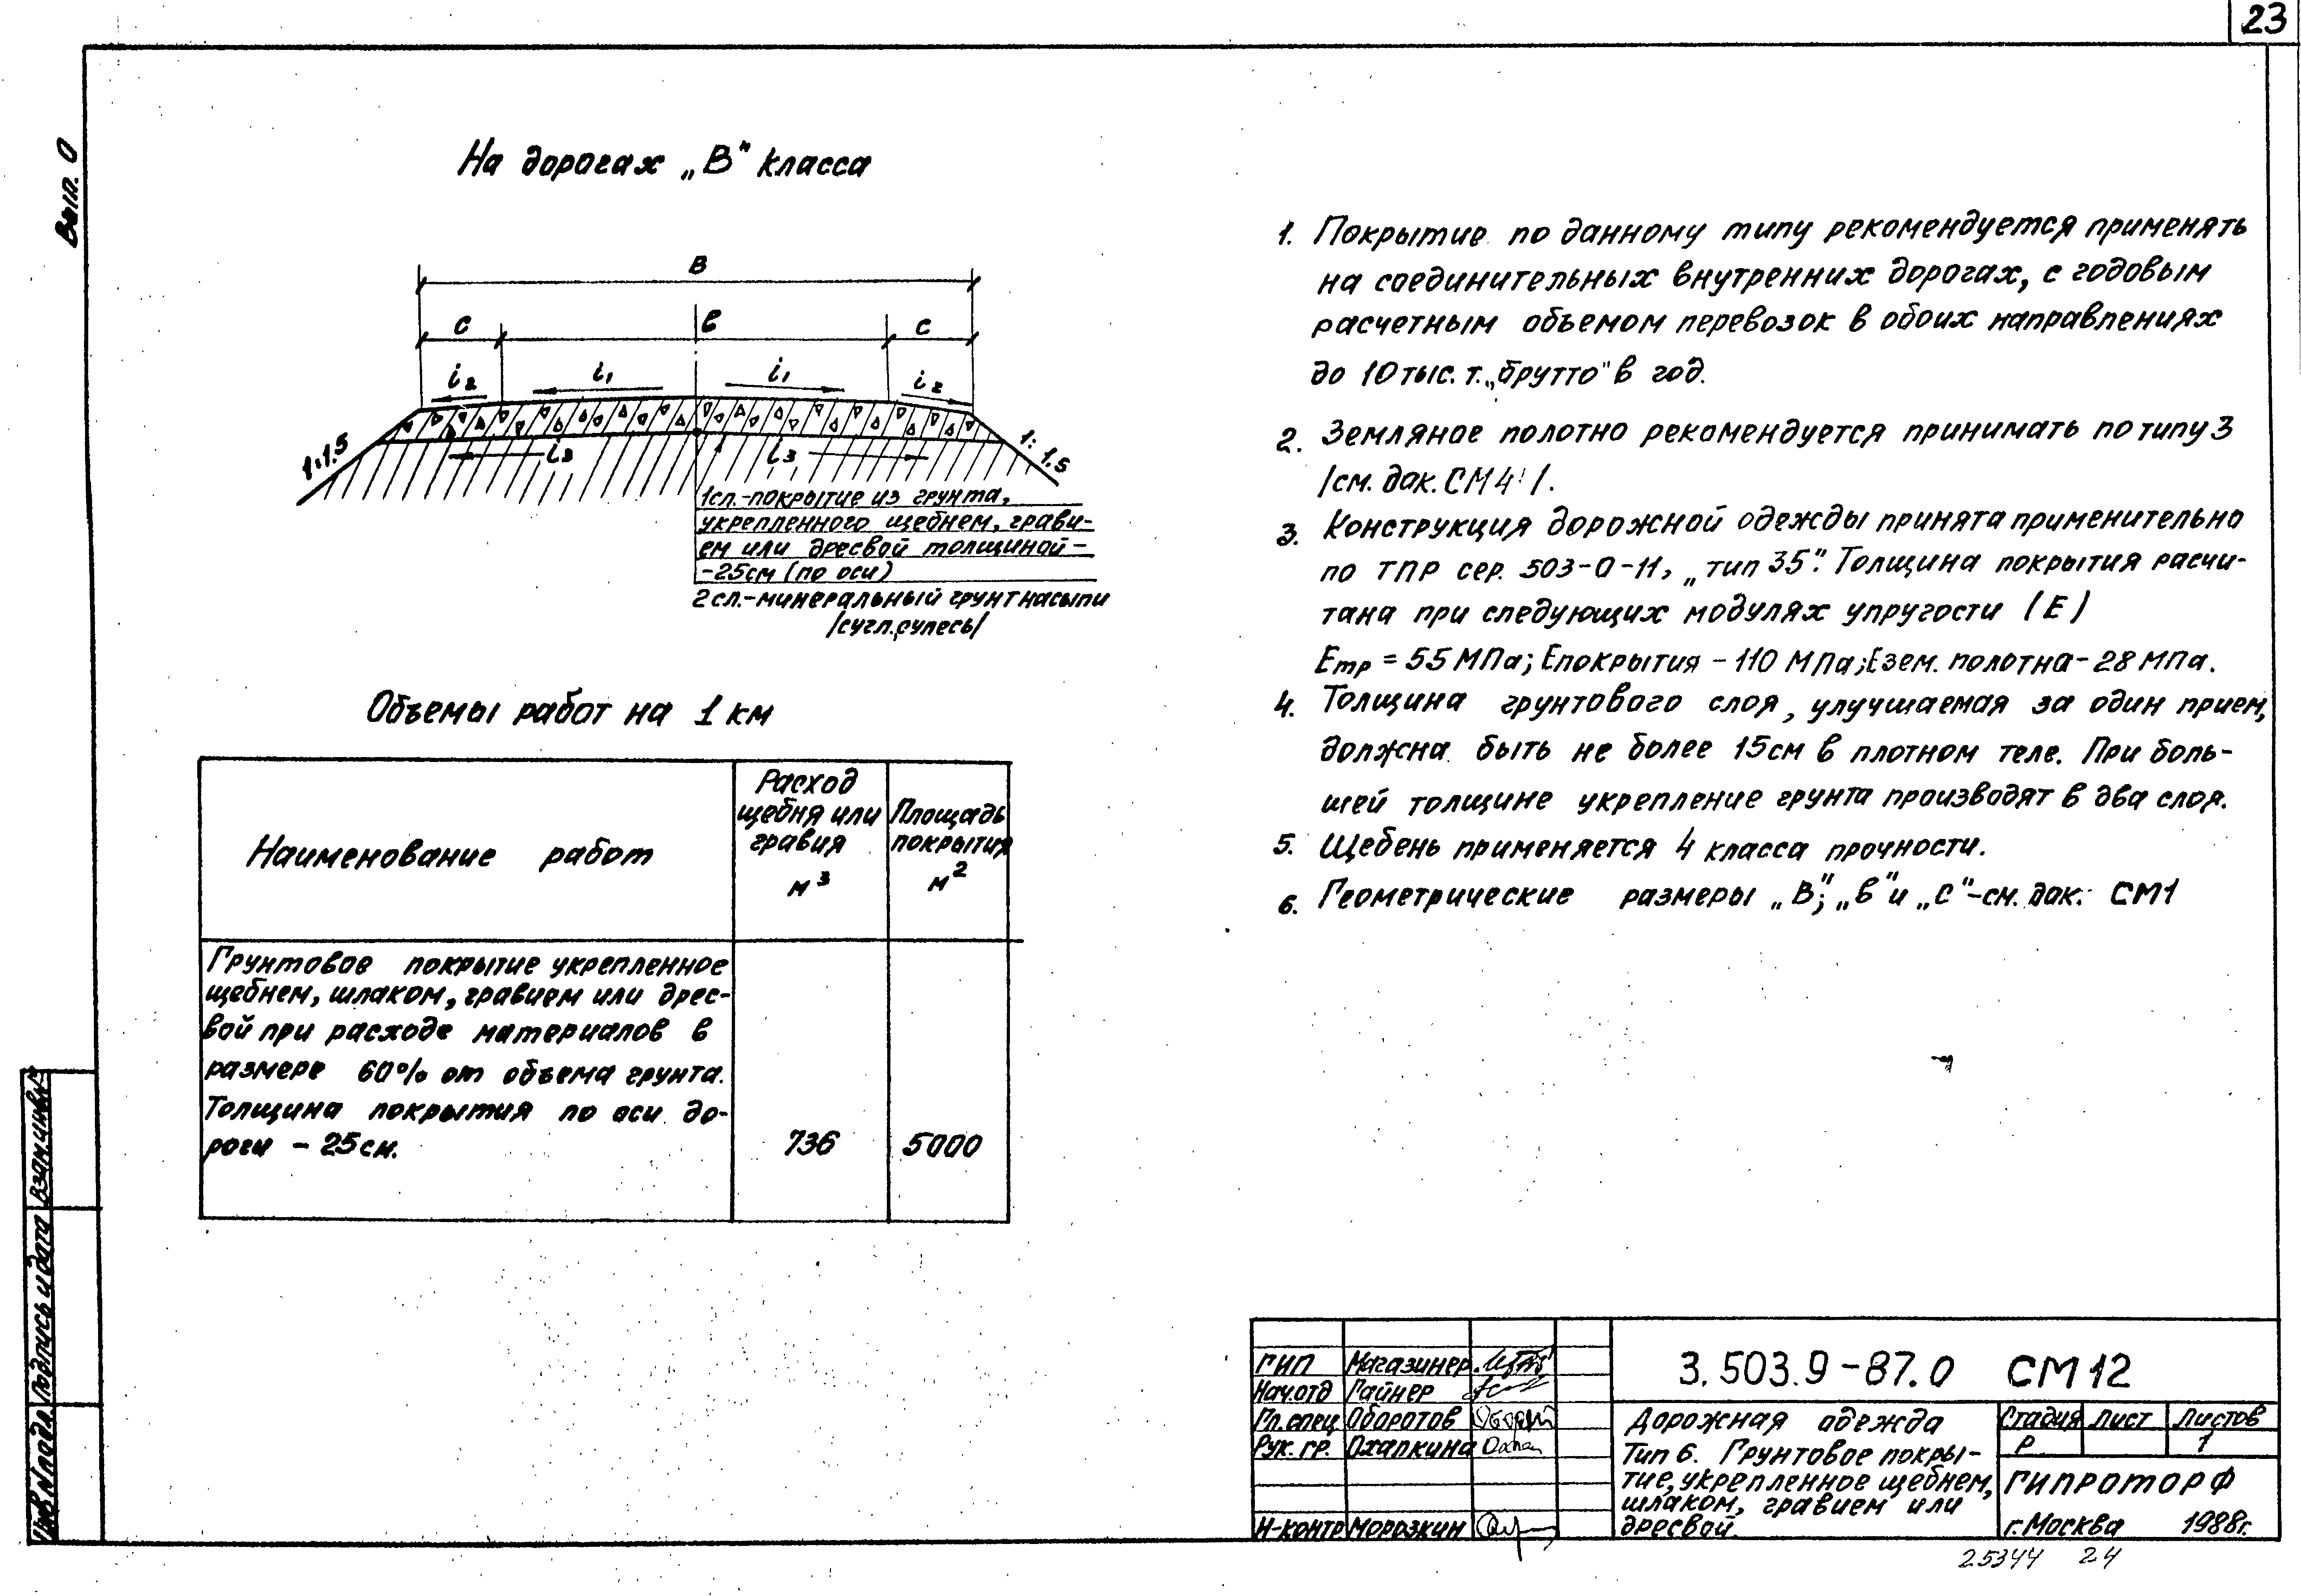 23
Вып. 0
На дорогах „В" класса
В
с в с
i₂ i₁ i₁ i₂
1:1.5 i₃ i₃ 1:1.5
1сл.-покрытие из грунта,
укрепленного щебнем, грави-
ем или дресвой толщиной-
-25см (по оси)
2сл.-минеральный грунт насыпи
/сугл.,супесь/
Объемы работ на 1 км
Наименование работ
Расход
щебня или
гравия
м³
Площадь
покрытия
м²
Грунтовое покрытие укрепленное
щебнем, шлаком, гравием или дрес-
вой при расходе материалов в
размере 60% от объема грунта.
Толщина покрытия по оси до-
роги - 25см. 736 5000
1. Покрытие по данному типу рекомендуется применять
на соединительных внутренних дорогах, с годовым
расчетным объемом перевозок в обоих направлениях
до 10 тыс. т. „брутто" в год.
2. Земляное полотно рекомендуется принимать по типу 3
/см. док. СМ4/.
3. Конструкция дорожной одежды принята применительно
по ТПР сер. 503-0-11, „тип 35". Толщина покрытия расчи-
тана при следующих модулях упругости (Е)
Етр = 55 МПа; Епокрытия - 110 МПа; Езем. полотна - 28 МПа.
4. Толщина грунтового слоя, улучшаемая за один прием,
должна быть не более 15см в плотном теле. При боль-
шей толщине укрепление грунта производят в два слоя.
5. Щебень применяется 4 класса прочности.
6. Геометрические размеры „В"; „в" и „с"-см. док. СМ1
Взам.инв.№
Подпись и дата
Инв № подл.
ГИП Магазинер
Нач.отд Гайнер
Гл.спец Оборотов
Рук. гр. Охапкина
Н-контр Морозкин
3.503.9-87.0 СМ12
Дорожная одежда
Тип 6. Грунтовое покры-
тие, укрепленное щебнем,
шлаком, гравием или
дресвой.
Стадия Лист Листов
Р 1
ГИПРОТОРФ
г.Москва 1988г.
25344 24